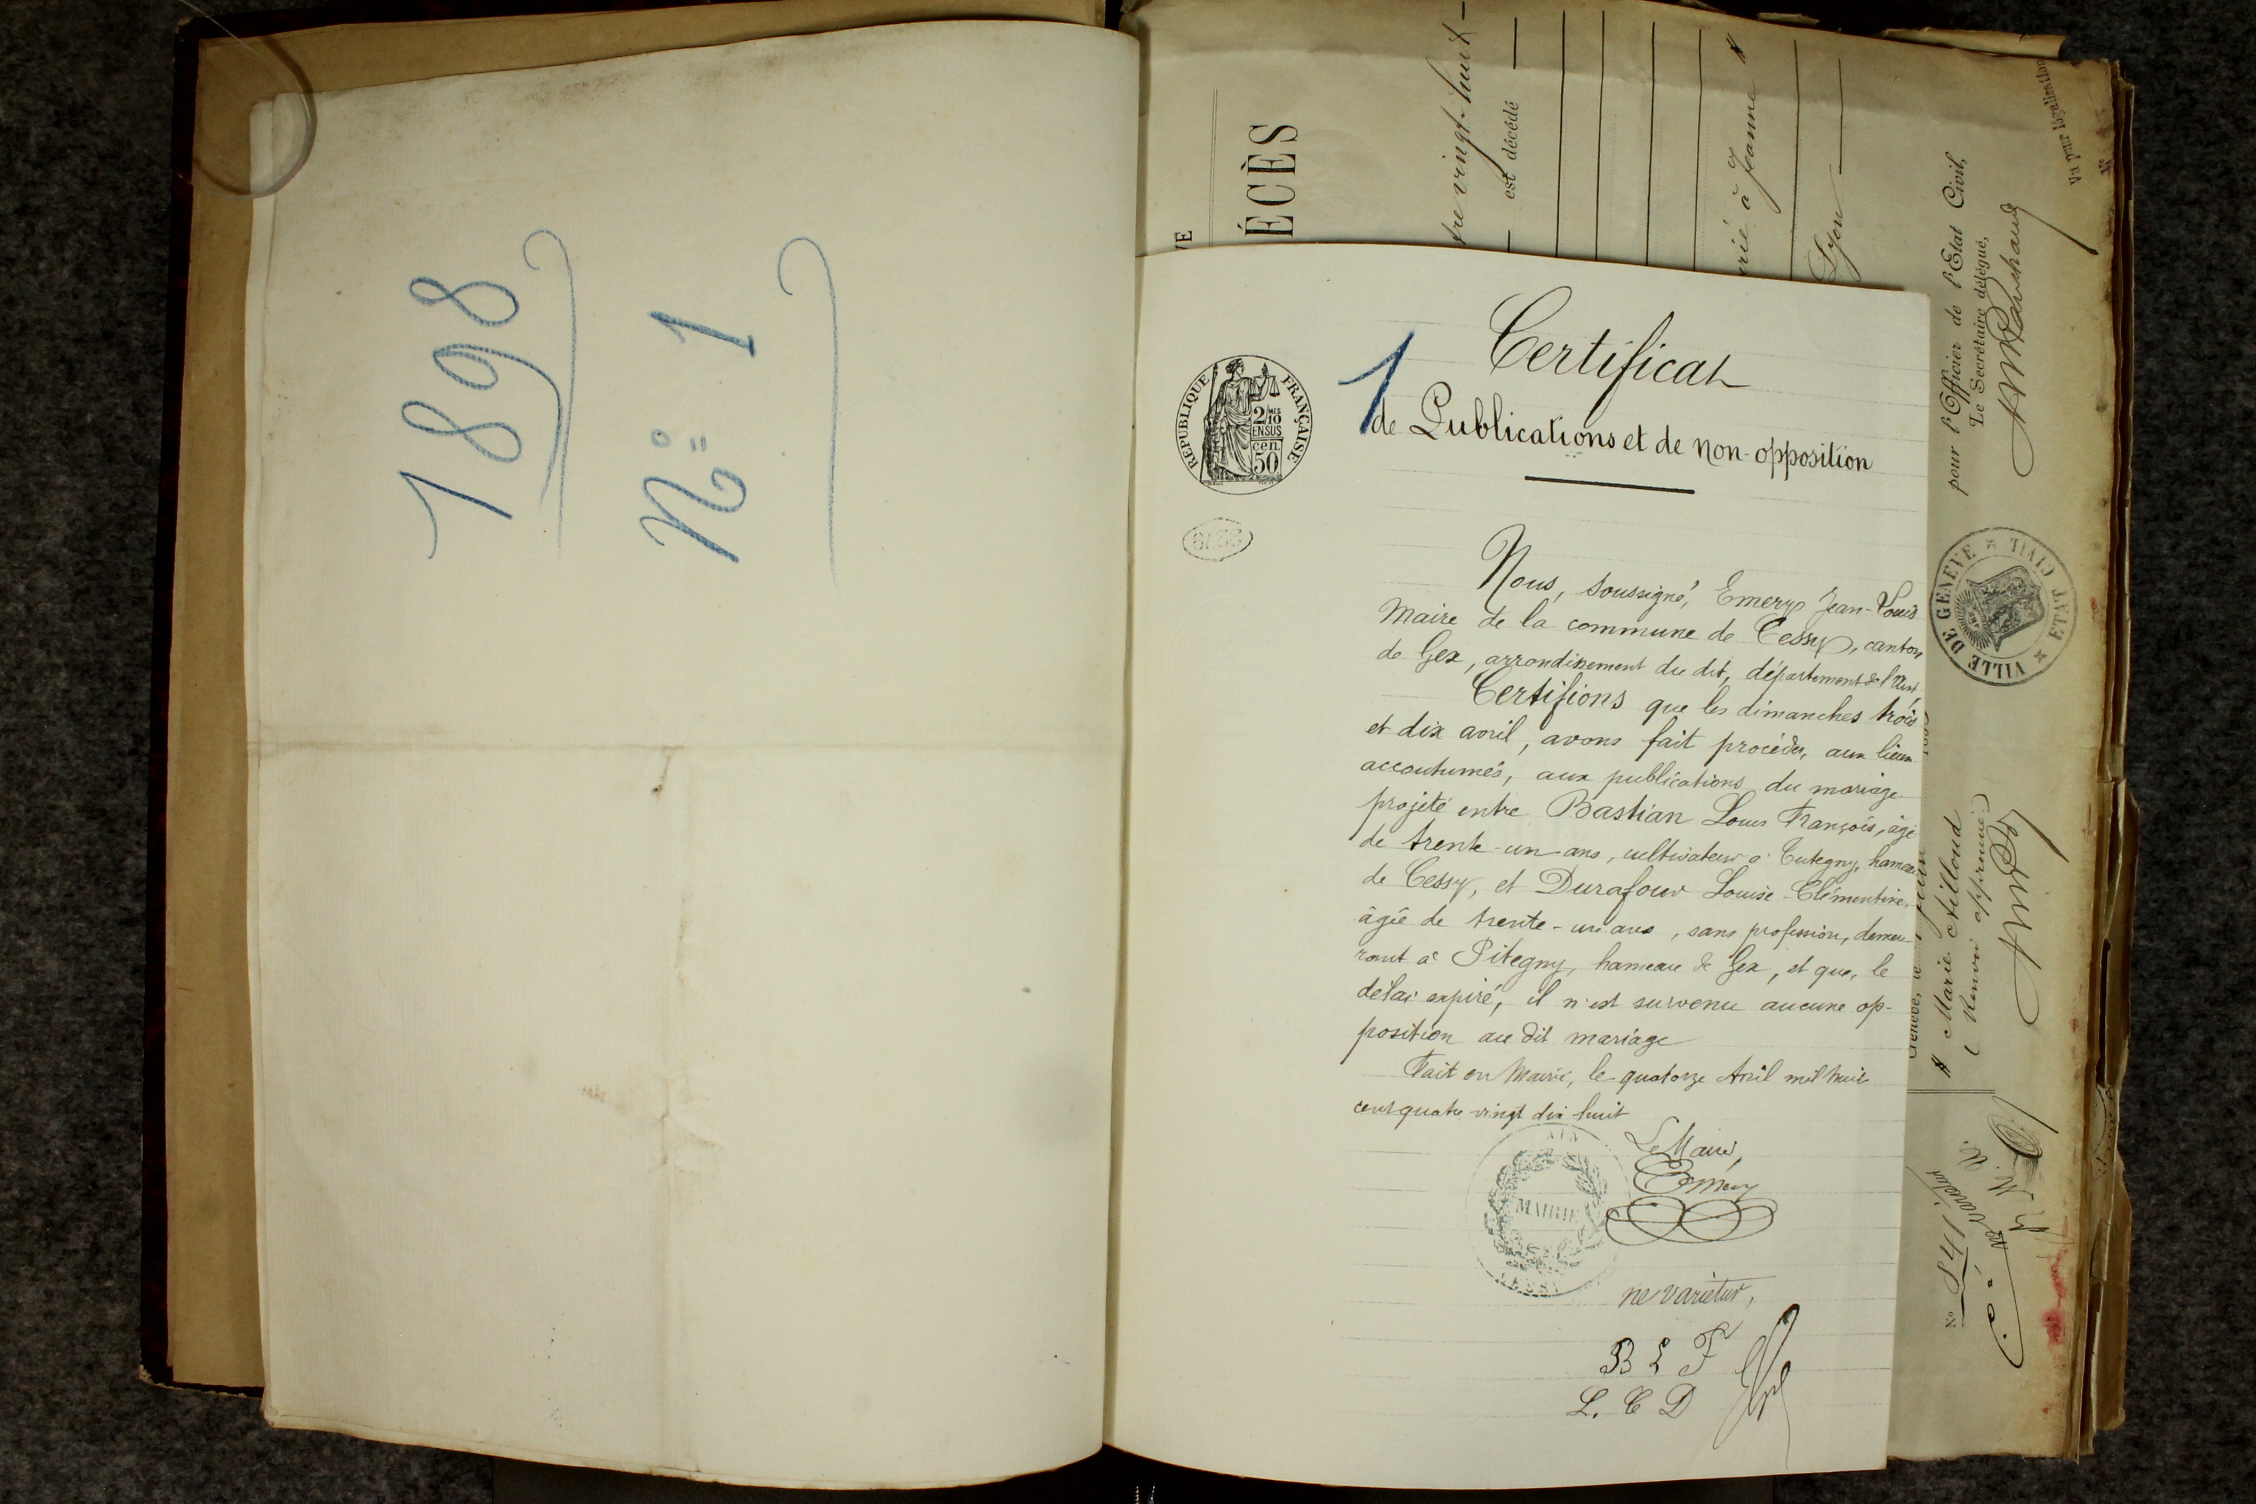 1898
Nº 1
1
Certificat
de Publications et de non-opposition
RÉPUBLIQUE FRANÇAISE
2/10 MES
EN SUS
50 cen
Nous, soussigné, Emery Jean-Louis
Maire de la commune de Cessy, canton
de Gex, arrondissement du dit, département de l'Ain,
Certifions que les dimanches trois
et dix avril, avons fait procéder, aux lieux
accoutumés, aux publications du mariage
projeté entre Bastian Louis François, âgé
de trente-un ans, cultivateur à Tutegny, hameau
de Cessy, et Durafour Louise-Clémentine,
âgée de trente-un ans, sans profession, demeu-
rant à Pitegny, hameau de Gex, et que, le
délai expiré, il n'est survenu aucune op-
position au dit mariage
Fait en Mairie, le quatorze Avril mil huit
cent quatre vingt dix huit
Le Maire,
Emery
AIN
MAIRIE
CESSY
ne varietur,
B L F
L. C D
ÉCÈS
vingt-huit
est décédé
à Jeanne #
Lyon
pour l'Officier de l'Etat Civil,
Le Secrétaire délégué,
Vu pour légalisation
VILLE DE GENÈVE
ETAT CIVIL
Genève, le
# Marie
(Renvoi approuvé)
No 841
ne varietur